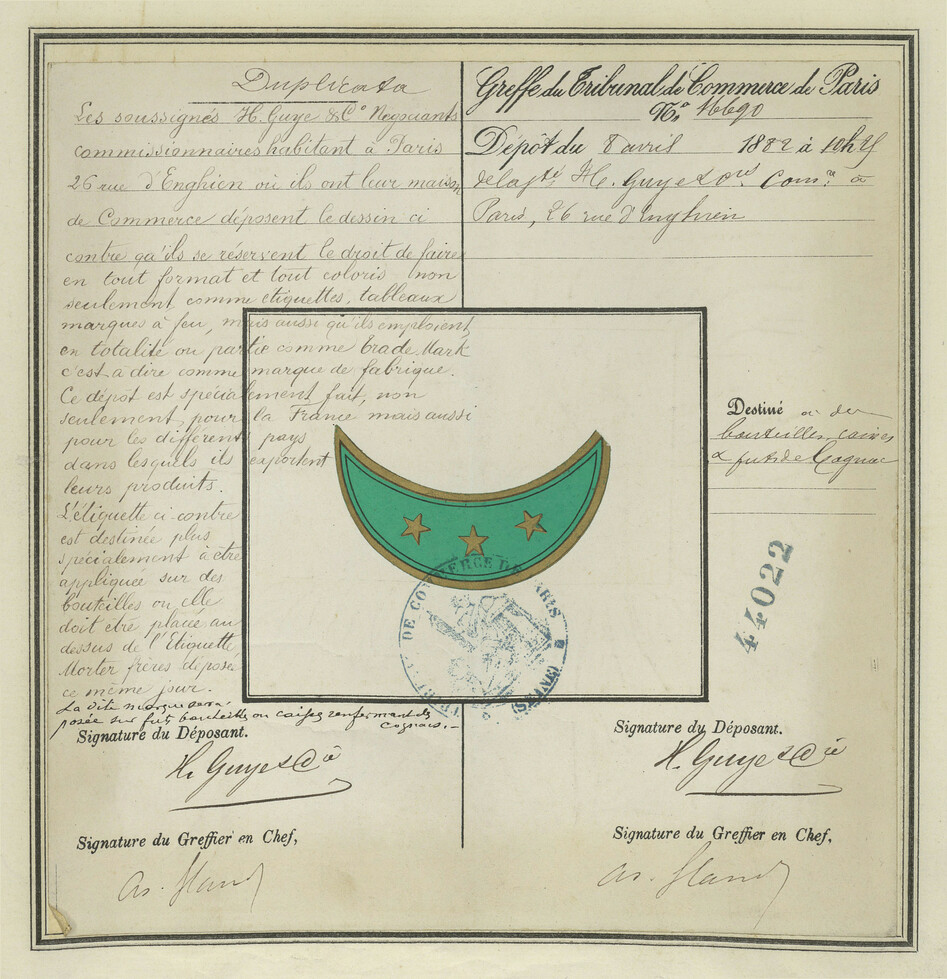 Duplicata
Les soussignés H. Guye & Co Négociants
commissionnaires habitant à Paris
26 rue d'Enghien où ils ont leur maison
de Commerce déposent le dessin ci
contre qu'ils se réservent le droit de faire
en tout format et tout coloris non
seulement comme étiquettes, tableaux
marques à feu, mais aussi qu'ils emploient
en totalité ou partie comme Trade Mark
c'est à dire comme marque de fabrique.
Ce dépot est spécialement fait, non
seulement, pour la France mais aussi
pour les différents pays
dans lesquels ils exportent
leurs produits.
L'étiquette ci-contre
est destinée plus
spécialement à être
appliquée sur des
bouteilles ou elle
doit être placée au
dessus de l'Etiquette
Morter frères déposée
ce même jour.
La dite marque sera
posée sur fûts bouteilles ou caisses renfermant des
cognacs.
Signature du Déposant.
H. Guye & Cie
Signature du Greffier en Chef,
Greffe du Tribunal de Commerce de Paris
No. 16690
Dépôt du 8 avril 1882 à 10h 25
de la sté H. Guye & Com. à
Paris, 26 rue d'Enghien
Destiné à des
bouteilles, caisses
& futs de Cognac
44022
DE COMMERCE DE PARIS
Signature du Déposant.
H. Guye & Cie
Signature du Greffier en Chef,